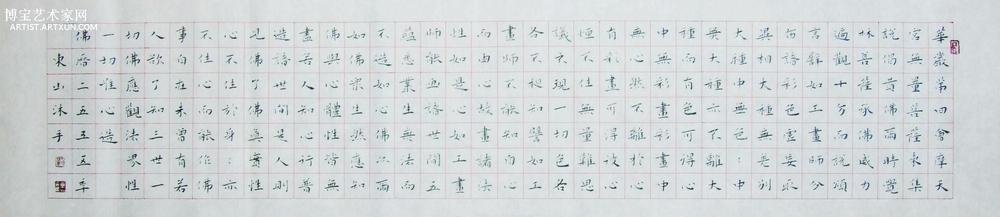 博宝艺术家网
ARTIST.ARTXUN.COM
華嚴第四會摩天
宮無量菩薩來集
說偈時覺
林菩薩承佛威力
遍觀十方而說頌
言譬如工畫師分
布諸彩色虛妄取
異相大種無差別
大種中無色色中
無大種亦不離大
種而有色可得心
中無彩畫彩畫中
無心然不離於心
有彩畫可得彼心
恒不住無量難思
議示現一切色各
各不相知譬如工
畫師不能知自心
而由心故畫諸法
性如是心如工畫
師能畫諸世間五
蘊悉從生無法而
不造如心佛亦爾
如佛眾生然應知
佛與心體性皆無
盡若人知心行普
造諸世間是人則
見佛了佛真實性
心不住於身身亦
不住心而能作佛
事自在未曾有若
人欲了知三世一
切佛應觀法界性
一切唯心造
佛曆二五五五年
東山沐手